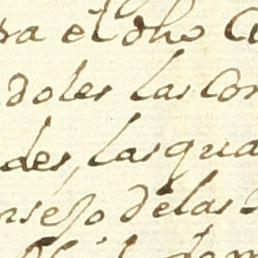 ra el dho C
doles las Con
des, las qua
nsejo de las